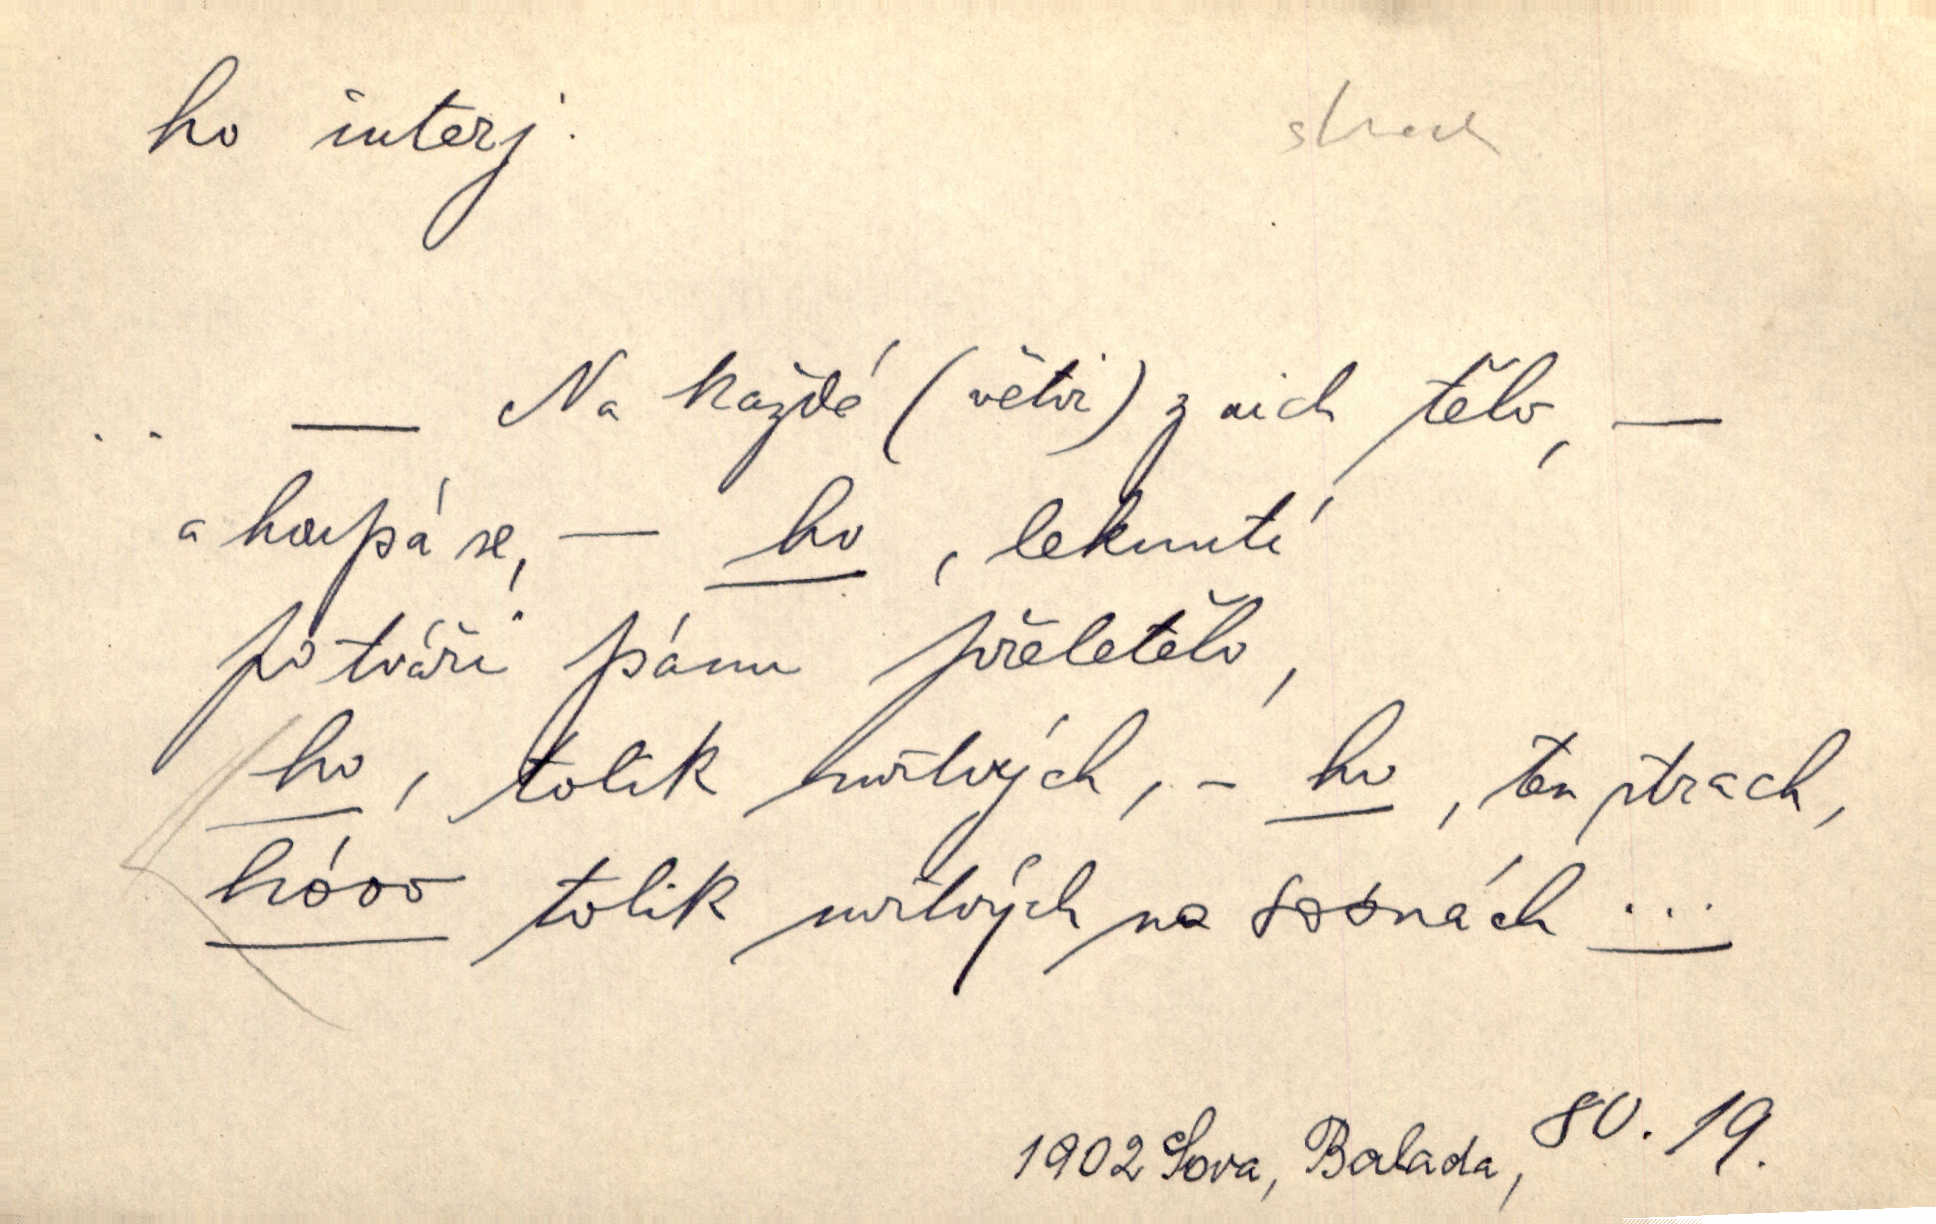 ho interj.
strach
— Na každé (větvi) z nich tělo, —
a houpá se, — ho, leknutí
po tváři pánu přeletělo,
ho, tolik mrtvých, - ho, ten strach,
hóoo tolik mrtvých na sosnách ...
1902 Sova, Balada, 80. 19.